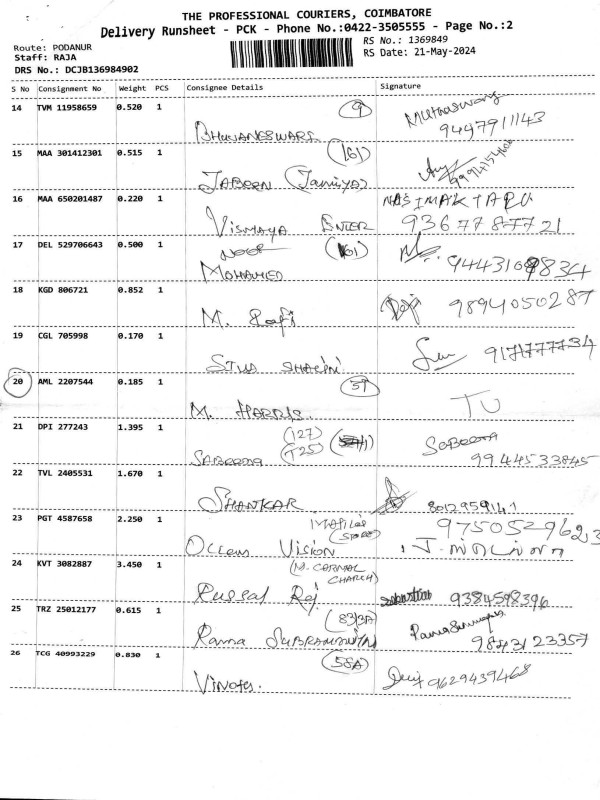 THE PROFESSIONAL COURIERS, COIMBATORE
Delivery Runsheet - PCK - Phone No.:0422-3505555 - Page No.:2
Route: PODANUR
RS No.: 1369849
Staff: RAJA
RS Date: 21-May-2024
DRS No.: DCJB136984902
S No Consignment No Weight PCS Consignee Details Signature
14 TVM 11958659 0.520 1
BHUVANESWARI
9447911143
15 MAA 301412301 0.515 1 (161)
JABEEN (Janiya)
16 MAA 650201487 0.220 1 NASIMAKTARU
VISMAYA ENTER 9367787721
17 DEL 529706643 0.500 1 (161)
NOOR
MOHAMED
18 KGD 806721 0.852 1
M. Rafi 9894050287
19 CGL 705998 0.170 1
SHALINI
20 AML 2207544 0.185 1 59
M. HARRIS TU
21 DPI 277243 1.395 1 (127)
SABEENA (T25) SABEENA
9944533845
22 TVL 2405531 1.670 1
SHANKAR 8012959141
23 PGT 4587658 2.250 1
OCCEAN VISION
24 KVT 3082887 3.450 1 (M. CARMAL
CHARCH)
Russal Raj 9384598396
25 TRZ 25012177 0.615 1 (83/3A)
Rama SUBRAMANIAN 9843123357
26 TCG 40993229 0.830 1 (58A)
9629439468